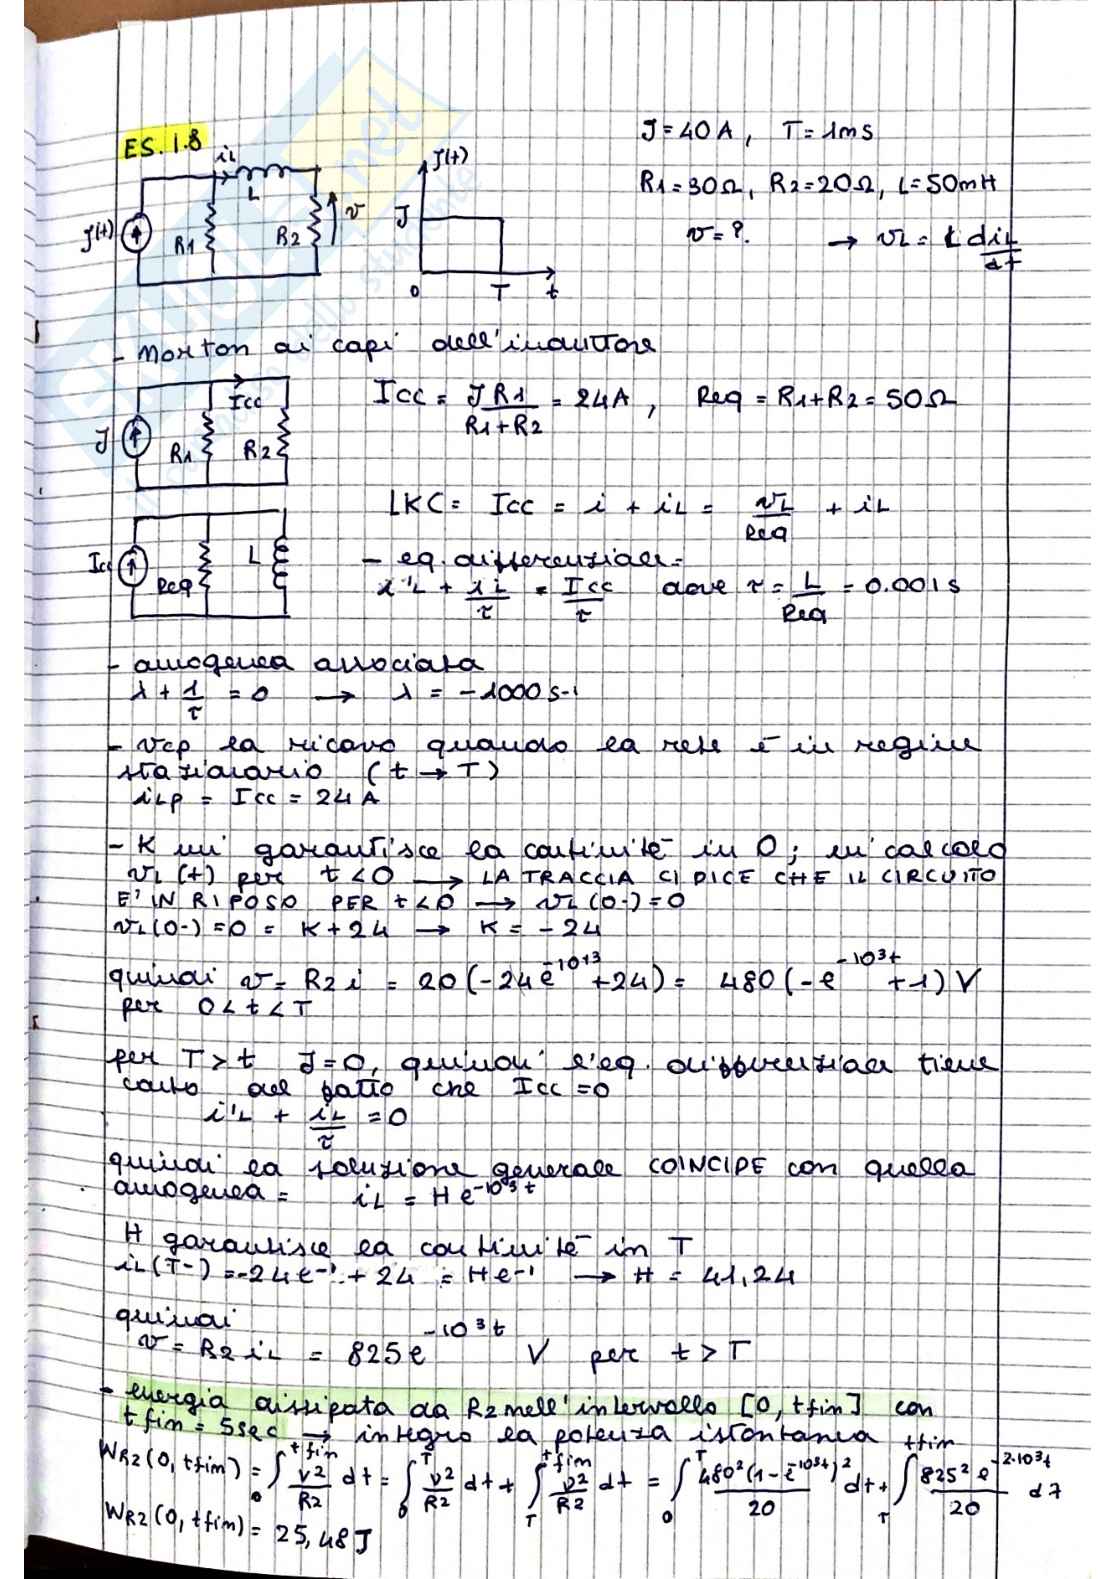 ES. 1.8
J = 40 A, T = 1ms
R1 = 30Ω, R2 = 20Ω, L = 50mH
v = ?. → vL = L diL/dt
J(t) iL L R1 R2 v
J(t) J 0 T t
- Norton ai capi dell'induttore
J R1 Icc R2
Icc = J R1/R1+R2 = 24A, Req = R1+R2 = 50Ω
LKC = Icc = i + iL = vL/Req + iL
Icc Req L
- eq. differenziale =
i'L + iL/τ = Icc/τ dove τ = L/Req = 0.001 s
- omogenea associata
λ + 1/τ = 0 → λ = -1000 s-1
- vcp la ricavo quando la rete è in regime
stazionario (t → T)
iLp = Icc = 24 A
- K mi garantisce la continuità in 0; mi calcolo
vL(t) per t<0 → LA TRACCIA CI DICE CHE IL CIRCUITO
E' IN RIPOSO PER t<0 → vL(0-) = 0
vL(0-) = 0 = K + 24 → K = -24
quindi v = R2 i = 20(-24e^-10+3 +24) = 480(-e^-10³t +1) V
per 0<t<T
per T>t J=0, quindi l'eq. differenziale tiene
conto del fatto che Icc=0
i'L + iL/τ = 0
quindi la soluzione generale COINCIDE con quella
omogenea = iL = H e^-10³t
H garantisce la continuità in T
iL(T-) = -24e^-1 + 24 = He^-1 → H = 41,24
quindi
v = R2 iL = 825e^-10³t V per t > T
- energia dissipata da R2 nell'intervallo [0, tfin] con
tfin = 5sec → integro la potenza istantanea
WR2(0, tfin) = ∫0^tfin v²/R2 dt = ∫0^T v²/R2 dt + ∫T^tfin v²/R2 dt = ∫0^T 480²(1-e^-10³t)²/20 dt + ∫T^tfin 825² e^-2·10³t/20 dt
WR2(0, tfin) = 25,48 J